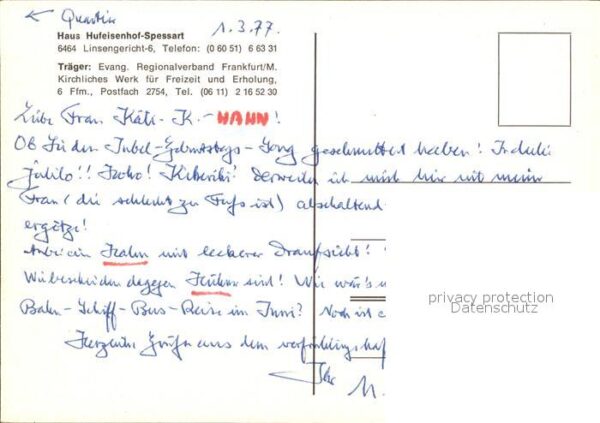 ← Quartier
1.3.77.
Haus Hufeisenhof-Spessart
6464 Linsengericht-6, Telefon: (0 60 51) 6 63 31
Träger: Evang. Regionalverband Frankfurt/M.
Kirchliches Werk für Freizeit und Erholung,
6 Ffm., Postfach 2754, Tel. (06 11) 2 16 52 30
Liebe Frau K.-HAHN!
Ob Sie den Jubel-Geburtstags-Song geschmettert haben!
Kikeriki! Derweilen ich mich hier mit meiner
Frau (die schlecht zu Fuß ist) abschaltend
ergötze!
Anbei ein Hahn mit leckerer Draufsicht!
Wie bescheiden dagegen Hühner sind! Wie wär's
Bahn-Schiff-Bus-Reise im Juni? Noch ist
Herzliche Grüße aus dem
Ihr
privacy protection
Datenschutz